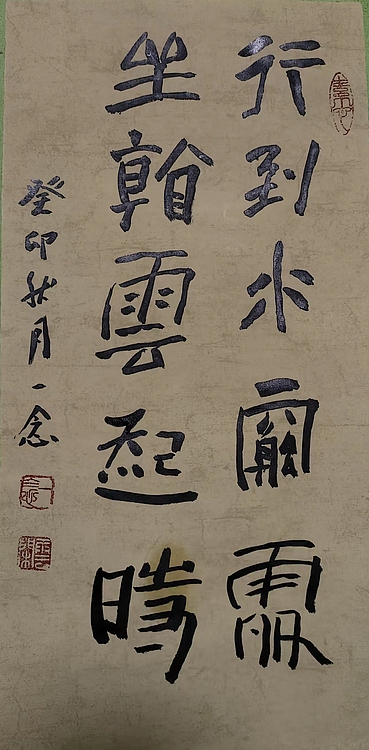 行到水窮處
坐看雲起時
癸卯秋月一念